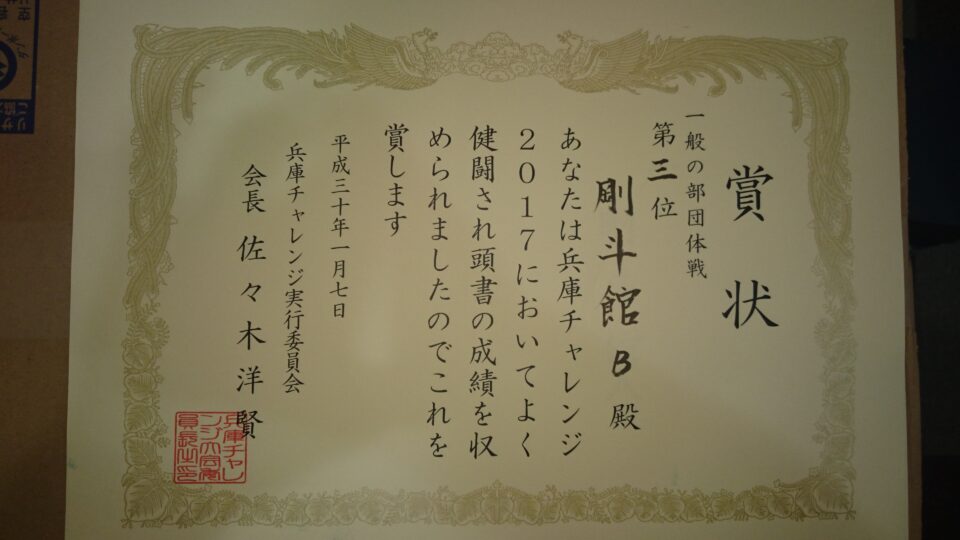 賞状
一般の部団体戦
第三位
剛斗館B殿
あなたは兵庫チャレンジ
2017においてよく
健闘され頭書の成績を収
められましたのでこれを
賞します
平成三十年一月七日
兵庫チャレンジ実行委員会
会長 佐々木洋賢
兵庫チャレ